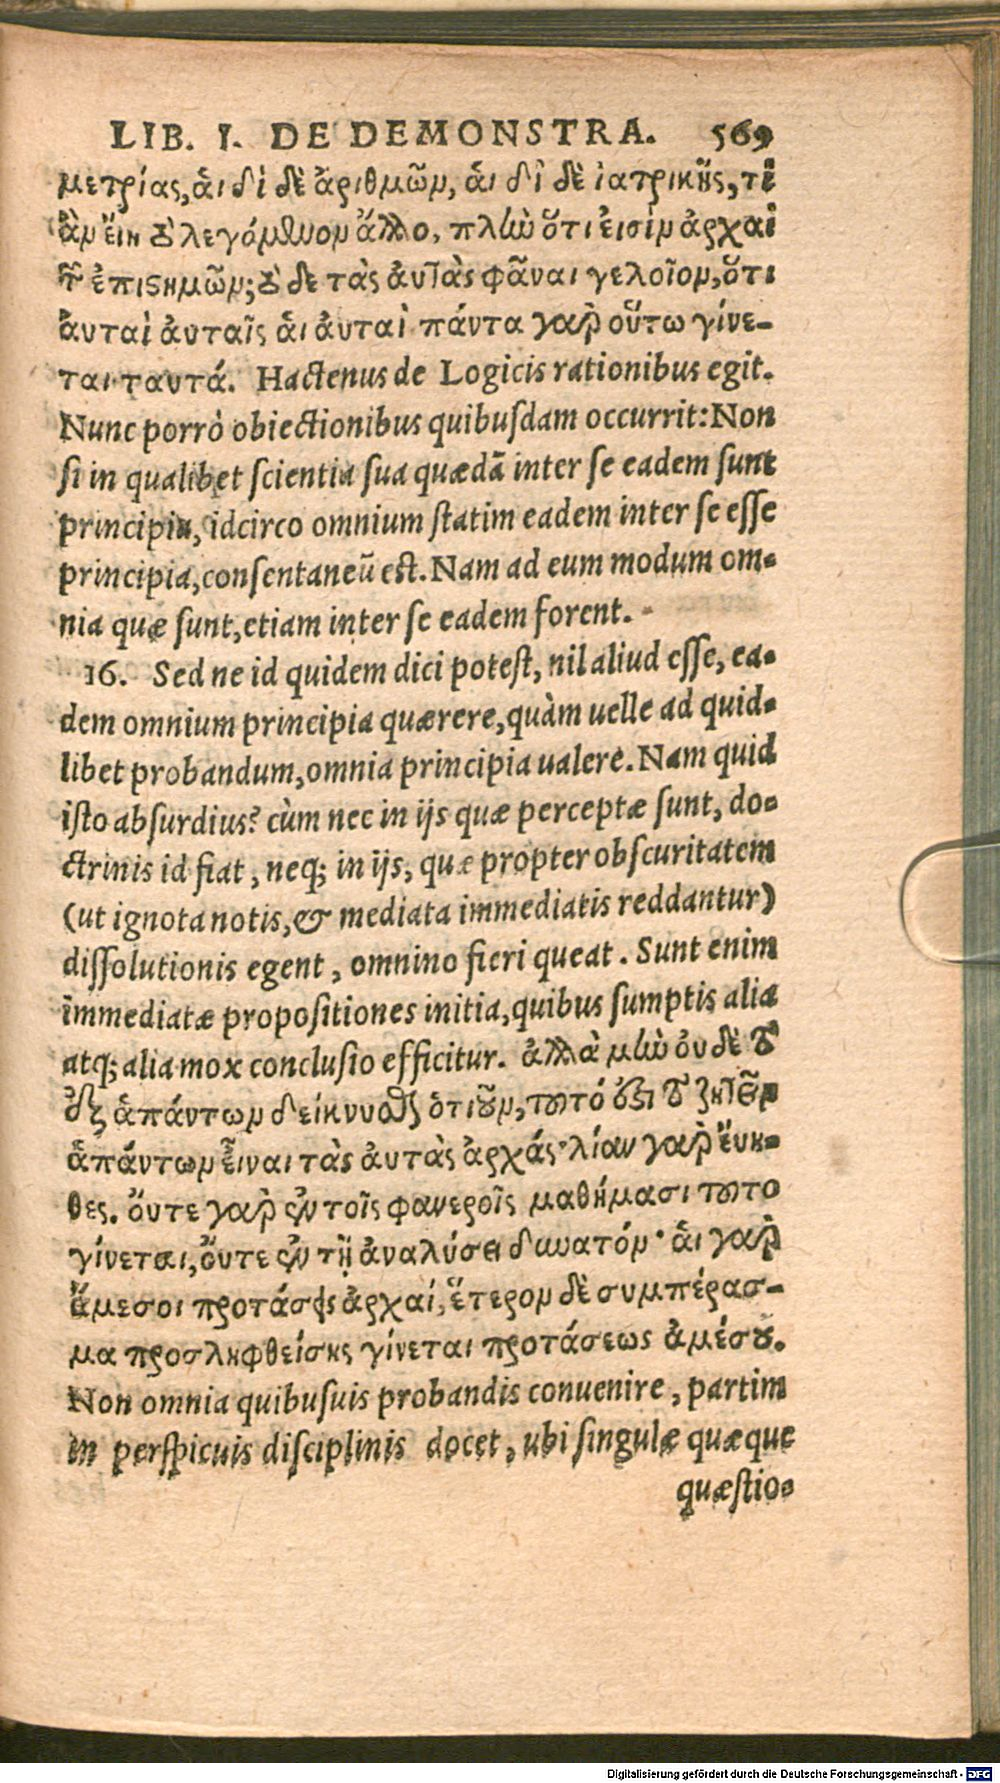 LIB. I. DE DEMONSTRA. 569
μετρίας, ἁι δὶ δὲ ἀριθμῶν, ἁι δὶ δὲ ἰατρικῆς, τί
ἂν ἔιη τὸ λεγόμενον ἄλλο, πλὴν ὅτι ἐισὶν ἀρχαὶ
τῶν ἐπιστημῶν; τὸ δὲ τὰς ἀυτὰς φᾶναι γελοῖον, ὅτι
ἀυταὶ ἀυταῖς ἁι ἀυταὶ πάντα γὰρ οὕτω γίνε-
ται ταυτά. Hactenus de Logicis rationibus egit.
Nunc porrò obiectionibus quibuſdam occurrit: Non
ſi in qualibet ſcientia ſua quædā inter ſe eadem ſunt
principia, idcirco omnium ſtatim eadem inter ſe eſſe
principia, conſentaneū eſt. Nam ad eum modum om-
nia quæ ſunt, etiam inter ſe eadem forent.
16. Sed ne id quidem dici poteſt, nil aliud eſſe, ea-
dem omnium principia quærere, quàm uelle ad quid-
libet probandum, omnia principia ualere. Nam quid
iſto abſurdius? cùm nec in ijs quæ perceptæ ſunt, do-
ctrinis id fiat, neq; in ijs, quæ propter obſcuritatem
(ut ignota notis, & mediata immediatis reddantur)
diſſolutionis egent, omnino fieri queat. Sunt enim
immediatæ propoſitiones initia, quibus ſumptis alia
atq; alia mox concluſio efficitur. ἀλλὰ μὴν οὐδὲ τὸ
ἐξ ἁπάντων δείκνυσθαι ὁτιοῦν, τοῦτό ἐστι τὸ ζητεῖν
ἁπάντων εἶναι τὰς ἀυτὰς ἀρχάς· λίαν γὰρ ἔυη-
θες. ὄυτε γὰρ ἐν τοῖς φανεροῖς μαθήμασι τοῦτο
γίνεται, ὄυτε ἐν τῇ ἀναλύσει δυνατόν· ἁι γὰρ
ἄμεσοι προτάσεις ἀρχαί, ἕτερον δὲ συμπέρασ-
μα προσληφθείσης γίνεται προτάσεως ἀμέσου.
Non omnia quibuſuis probandis conuenire, partim
in perſpicuis diſciplinis docet, ubi ſingulæ quæque
quæſtio-
Digitalisierung gefördert durch die Deutsche Forschungsgemeinschaft - DFG